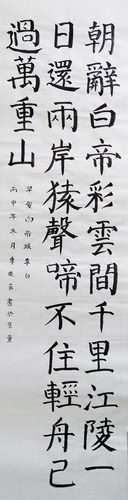 朝辭白帝彩雲間千里江陵一
日還兩岸猿聲啼不住輕舟已
過萬重山
早發白帝城 李白
丙申年冬月